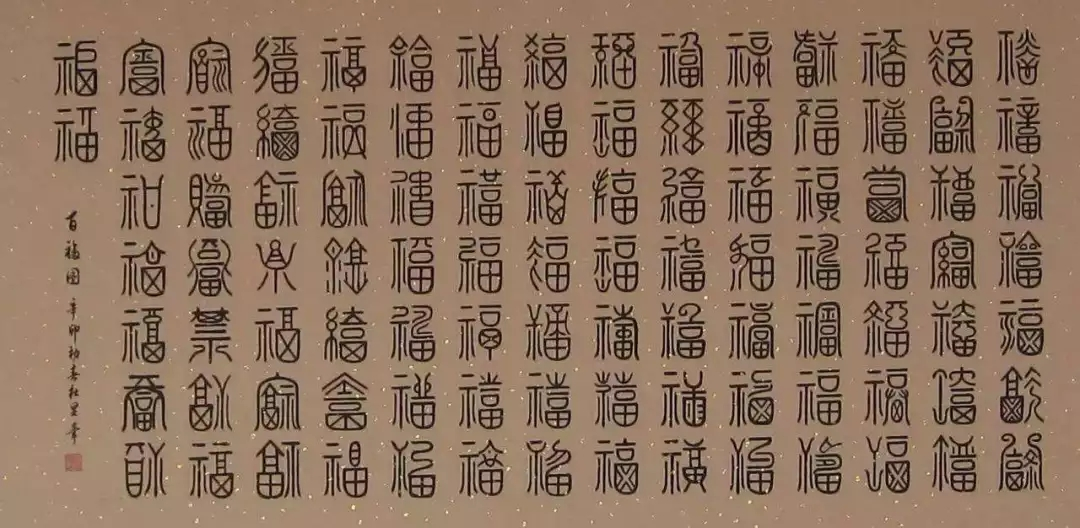 福福福福福福福
福福福福福福福
福福福福福福福
福福福福福福福
福福福福福福福
福福福福福福福
福福福福福福福
福福福福福福福
福福福福福福福
福福福福福福福
福福福福福福福
福福福福福福福
福福福福福福福
福福福福福福福
福福
百福图 辛卯初春